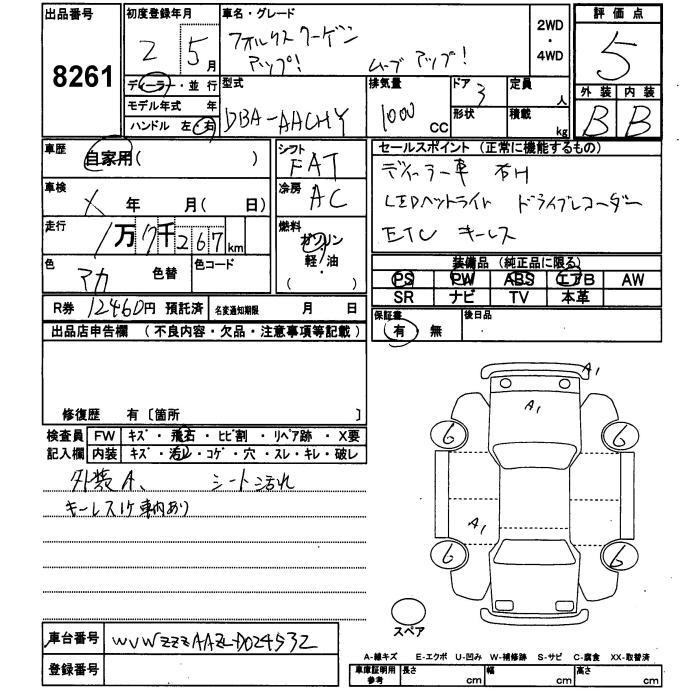 出品番号
8261
初度登録年月
2 5月
車名・グレード
フォルクスワーゲン
アップ! ムーブ アップ!
2WD
・
4WD
評価点
5
外装 内装
B B
ディーラー・並行
モデル年式 年
ハンドル 左・右
型式
DBA-AACHY
排気量
1000 CC
ドア 3
形状
定員 人
積載 kg
車歴
自家用( )
シフト
FAT
セールスポイント (正常に機能するもの)
ディーラー車 右H
LEDヘットライト ドライブレコーダー
ETC キーレス
車検
X 年 月( 日)
冷房
AC
走行
1万7千267km
燃料
ガソリン
軽・油
( )
色
アカ 色替
色コード
装備品 (純正品に限る)
PS PW ABS エアB AW
SR ナビ TV 本革
R券 12460円 預託済
名変通知期限 月 日
保証書
有・無
後日品
出品店申告欄 (不良内容・欠品・注意事項等記載)
修復歴 有〔箇所 〕
検査員
記入欄
FW キズ・飛石・ヒビ割・リペア跡・X要
内装 キズ・汚レ・コゲ・穴・スレ・キレ・破レ
外装A、 シート汚れ
キーレス1ケ車内あり
A1
A1
6 6
A1
6 6
スペア
車台番号
WVWZZZAAZLD024532
登録番号
A-線キズ E-エクボ U-凹み W-補修跡 S-サビ C-腐食 XX-取替済
車庫証明用
参考
長さ cm
幅 cm
高さ cm